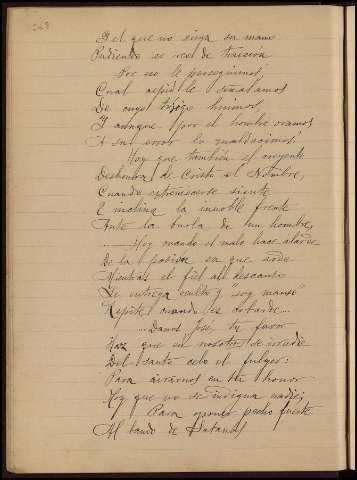 268
Y el que no siega su mano
Pudiendo es reo de traición
Por no le perseguimos,
Cual áspid le señalamos
De cuyo huimos,
Y aunque por el hombre oramos
A su error lo maldecimos.
Hoy que también el creyente
Deshonra de Cristo el Nombre,
Cuando estremecerse siente
E inclina la innoble frente
Ante la burla de un hombre,
Hoy cuando el malo hace alarde
De la pasión en que arde
Mientras el fiel al descanso
Se entrega oculto y "soy manso"
Repite cuando es cobarde...
Danos José, tu favor
Haz que en nosotros se irradie
Del santo celo el fulgor:
Para airarnos en tu honor
Hoy que no se indigna nadie;
Para oponer pecho fuerte
Al bando de Satanás